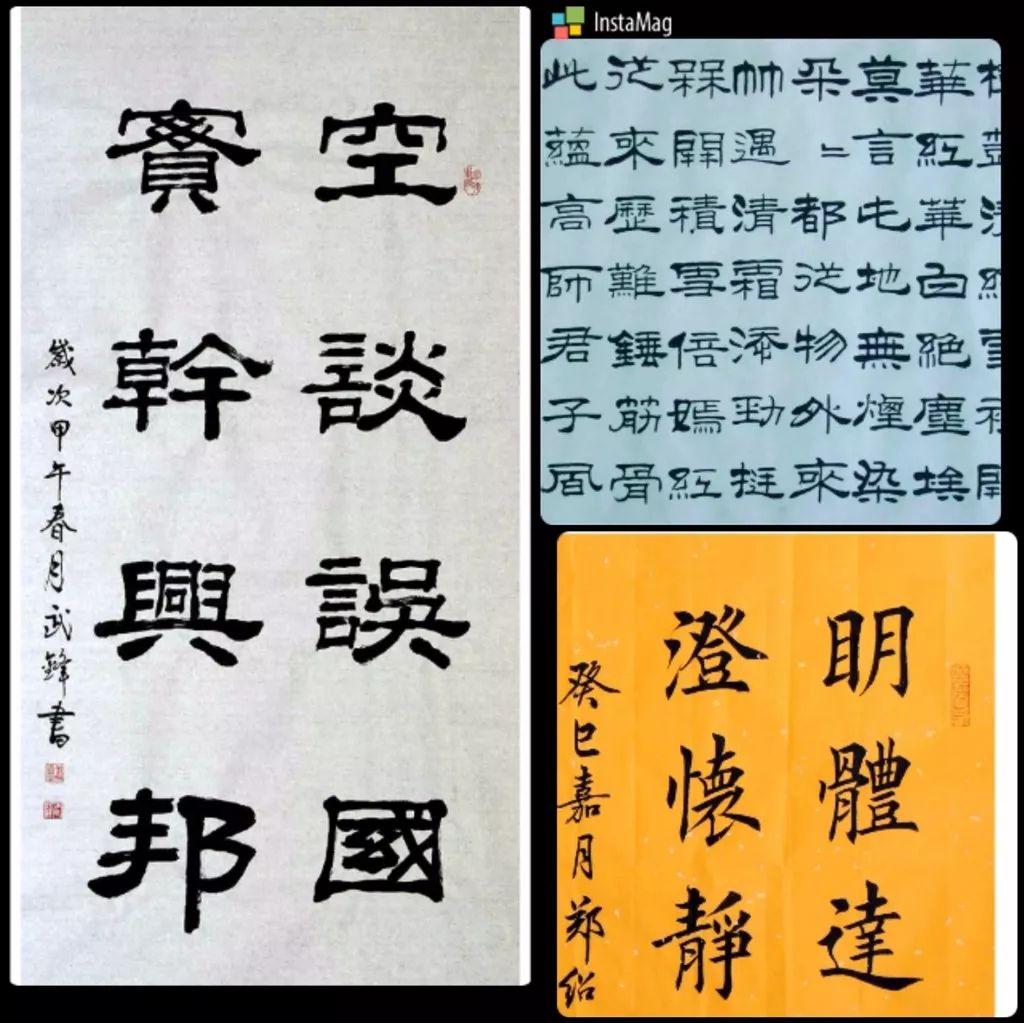 InstaMag
空談誤國
實幹興邦
歲次甲午春月武鋒書
華紅華白絕塵埃
莫言屯地無煙染
朵〻都從物外來
竹遇清霜添勁挺
槑開積雪倍嫣紅
從來歷難錘筋骨
此蘊高師君子風
眀體達
澄懷靜
癸巳嘉月郑绍